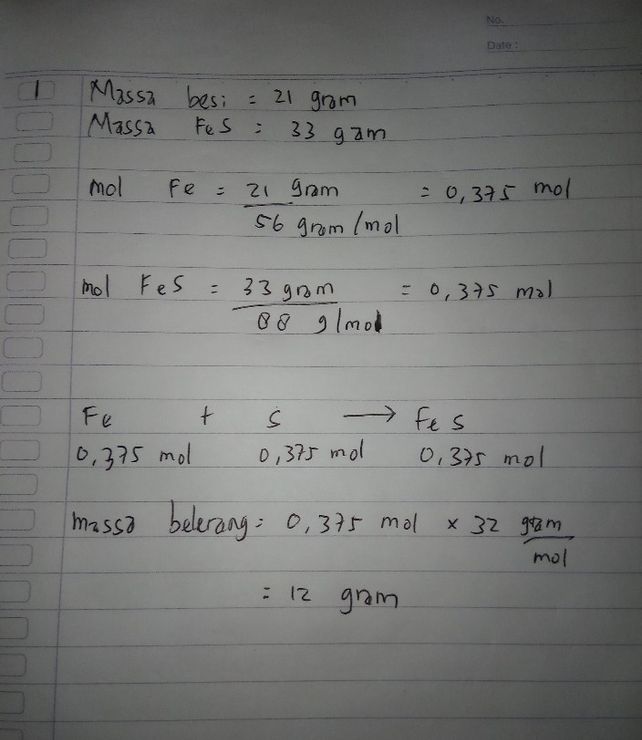 No.
Date :
1 Massa besi = 21 gram
Massa FeS = 33 gam
mol Fe = 21 gram = 0,375 mol
56 gram/mol
mol FeS = 33 gram = 0,375 mol
88 g/mol
Fe + S → FeS
0,375 mol 0,375 mol 0,375 mol
massa belerang = 0,375 mol × 32 gram
mol
= 12 gram